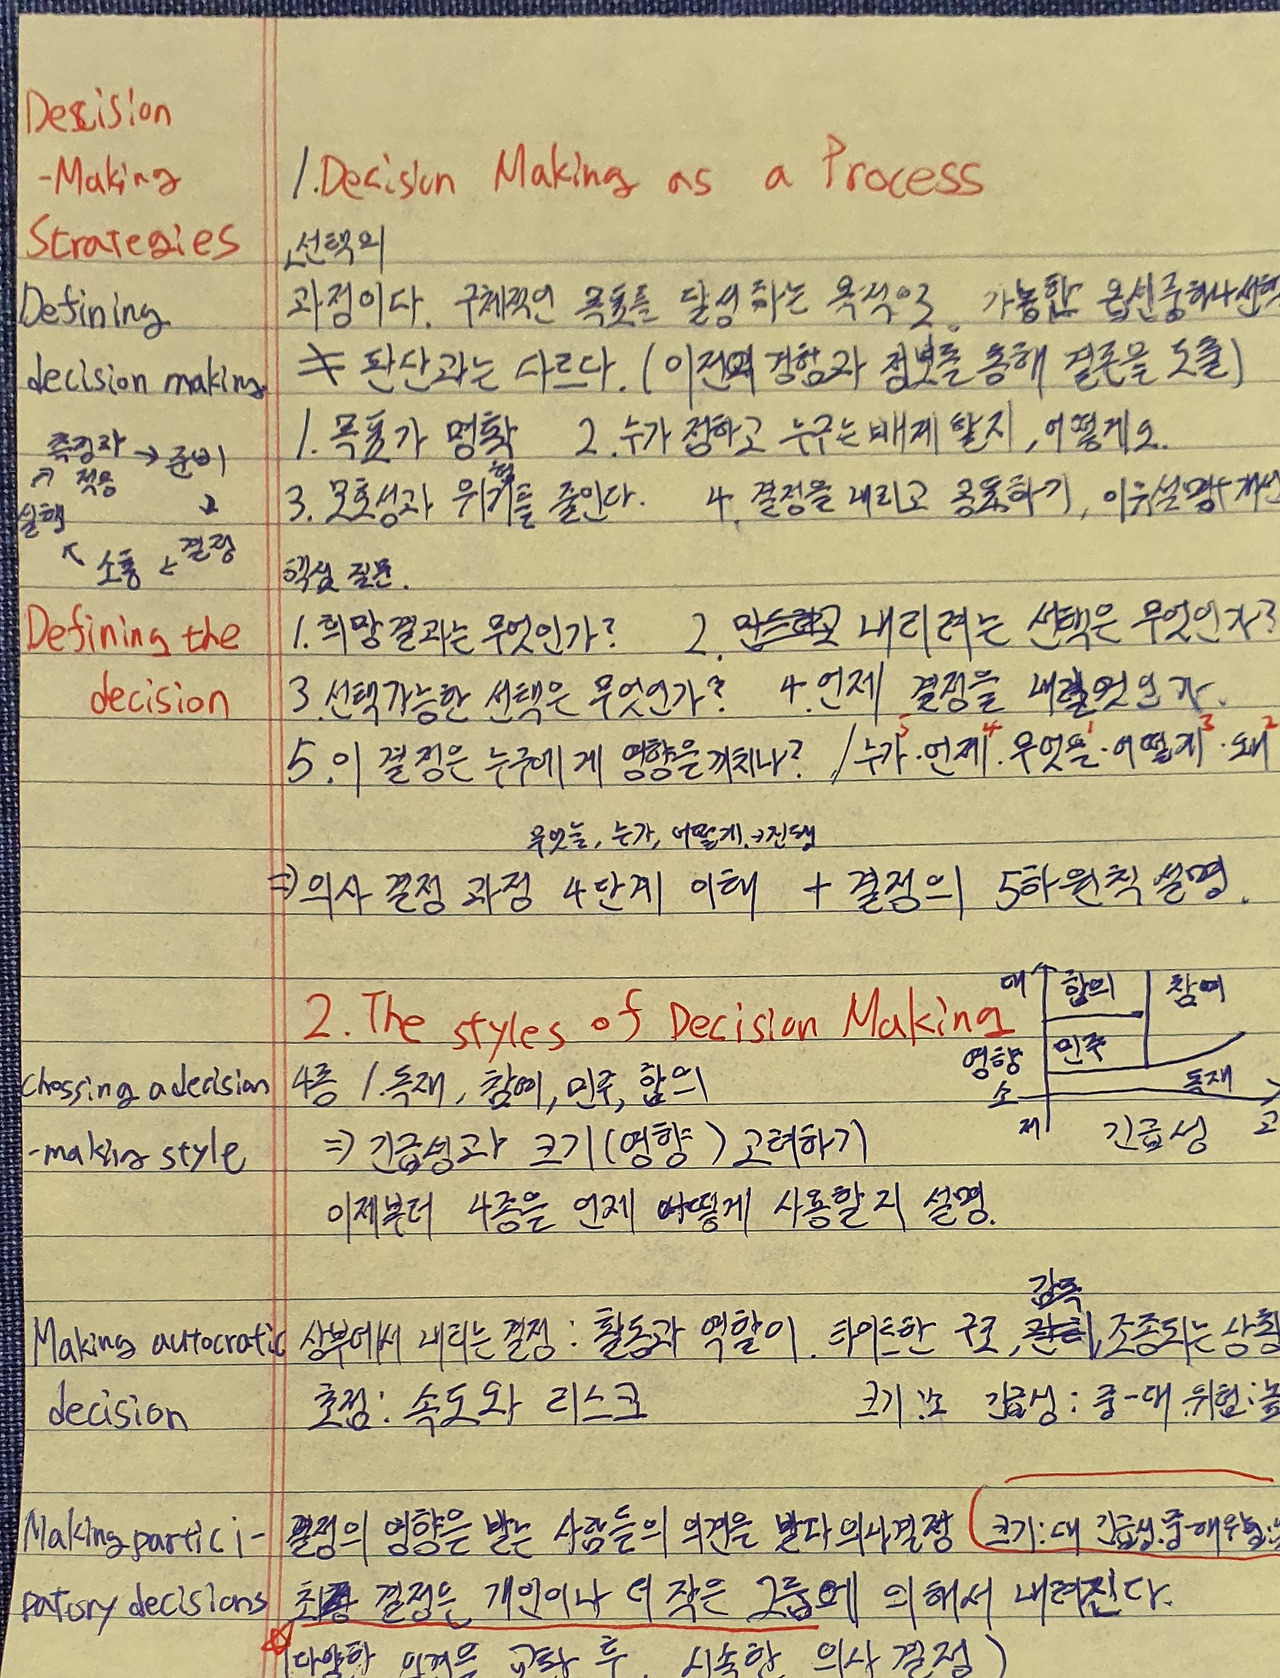 Decision
-Making
Strategies
1. Decision Making as a Process
선택의
Defining
decision making
과정이다. 구체적인 목표를 달성하는 목적으로, 가능한 옵션중하나선택
≠ 판단과는 다르다. (이전의 경험과 정보를 통해 결론을 도출)
1. 목표가 명확 2. 누가 정하고 누구는 배제 할지, 어떻게요.
3. 모호성과 위험를 줄인다. 4. 결정을 내리고 공통하기, 이유설명+개선
측정자 → 준비
적응
실행
소통 ← 결정
핵심 질문.
Defining the
decision
1. 희망결과는 무엇인가? 2. 내리려는 선택은 무엇인지?
3. 선택가능한 선택은 무엇인가? 4. 언제 결정을
5. 이 결정은 누구에게 영향을 끼치나? / 누가5·언제4·무엇을1·어떻게3·왜2
무엇을, 누가, 어떻게.→진행
⇒ 의사 결정 과정 4단계 이해 + 결정의 5하원칙 설명.
2. The styles of Decision Making
대 합의 참여
영향 민주
소 독재
저 긴급성 고
Chossing a decision
-making style
4종 1. 독재, 참여, 민주, 합의
⇒ 긴급성과 크기(영향) 고려하기
이제부터 4종을 언제 어떻게 사용할지 설명.
감독
Making autocratic
decision
상부에서 내리는 결정 : 활동과 역할이 타이트한 구조, 조종되는 상황
초점: 속도와 리스크 크기:소 긴급성: 중-대 위험:높
Making partici-
patory decisions
결정의 영향을 받는 사람들의 의견을 받다 의사결정 크기:대 긴급성:중
결정은 개인이나 더 작은 그룹에 의해서 내려진다.
(다양한 의견을 교환 후, 신속한 의사 결정)